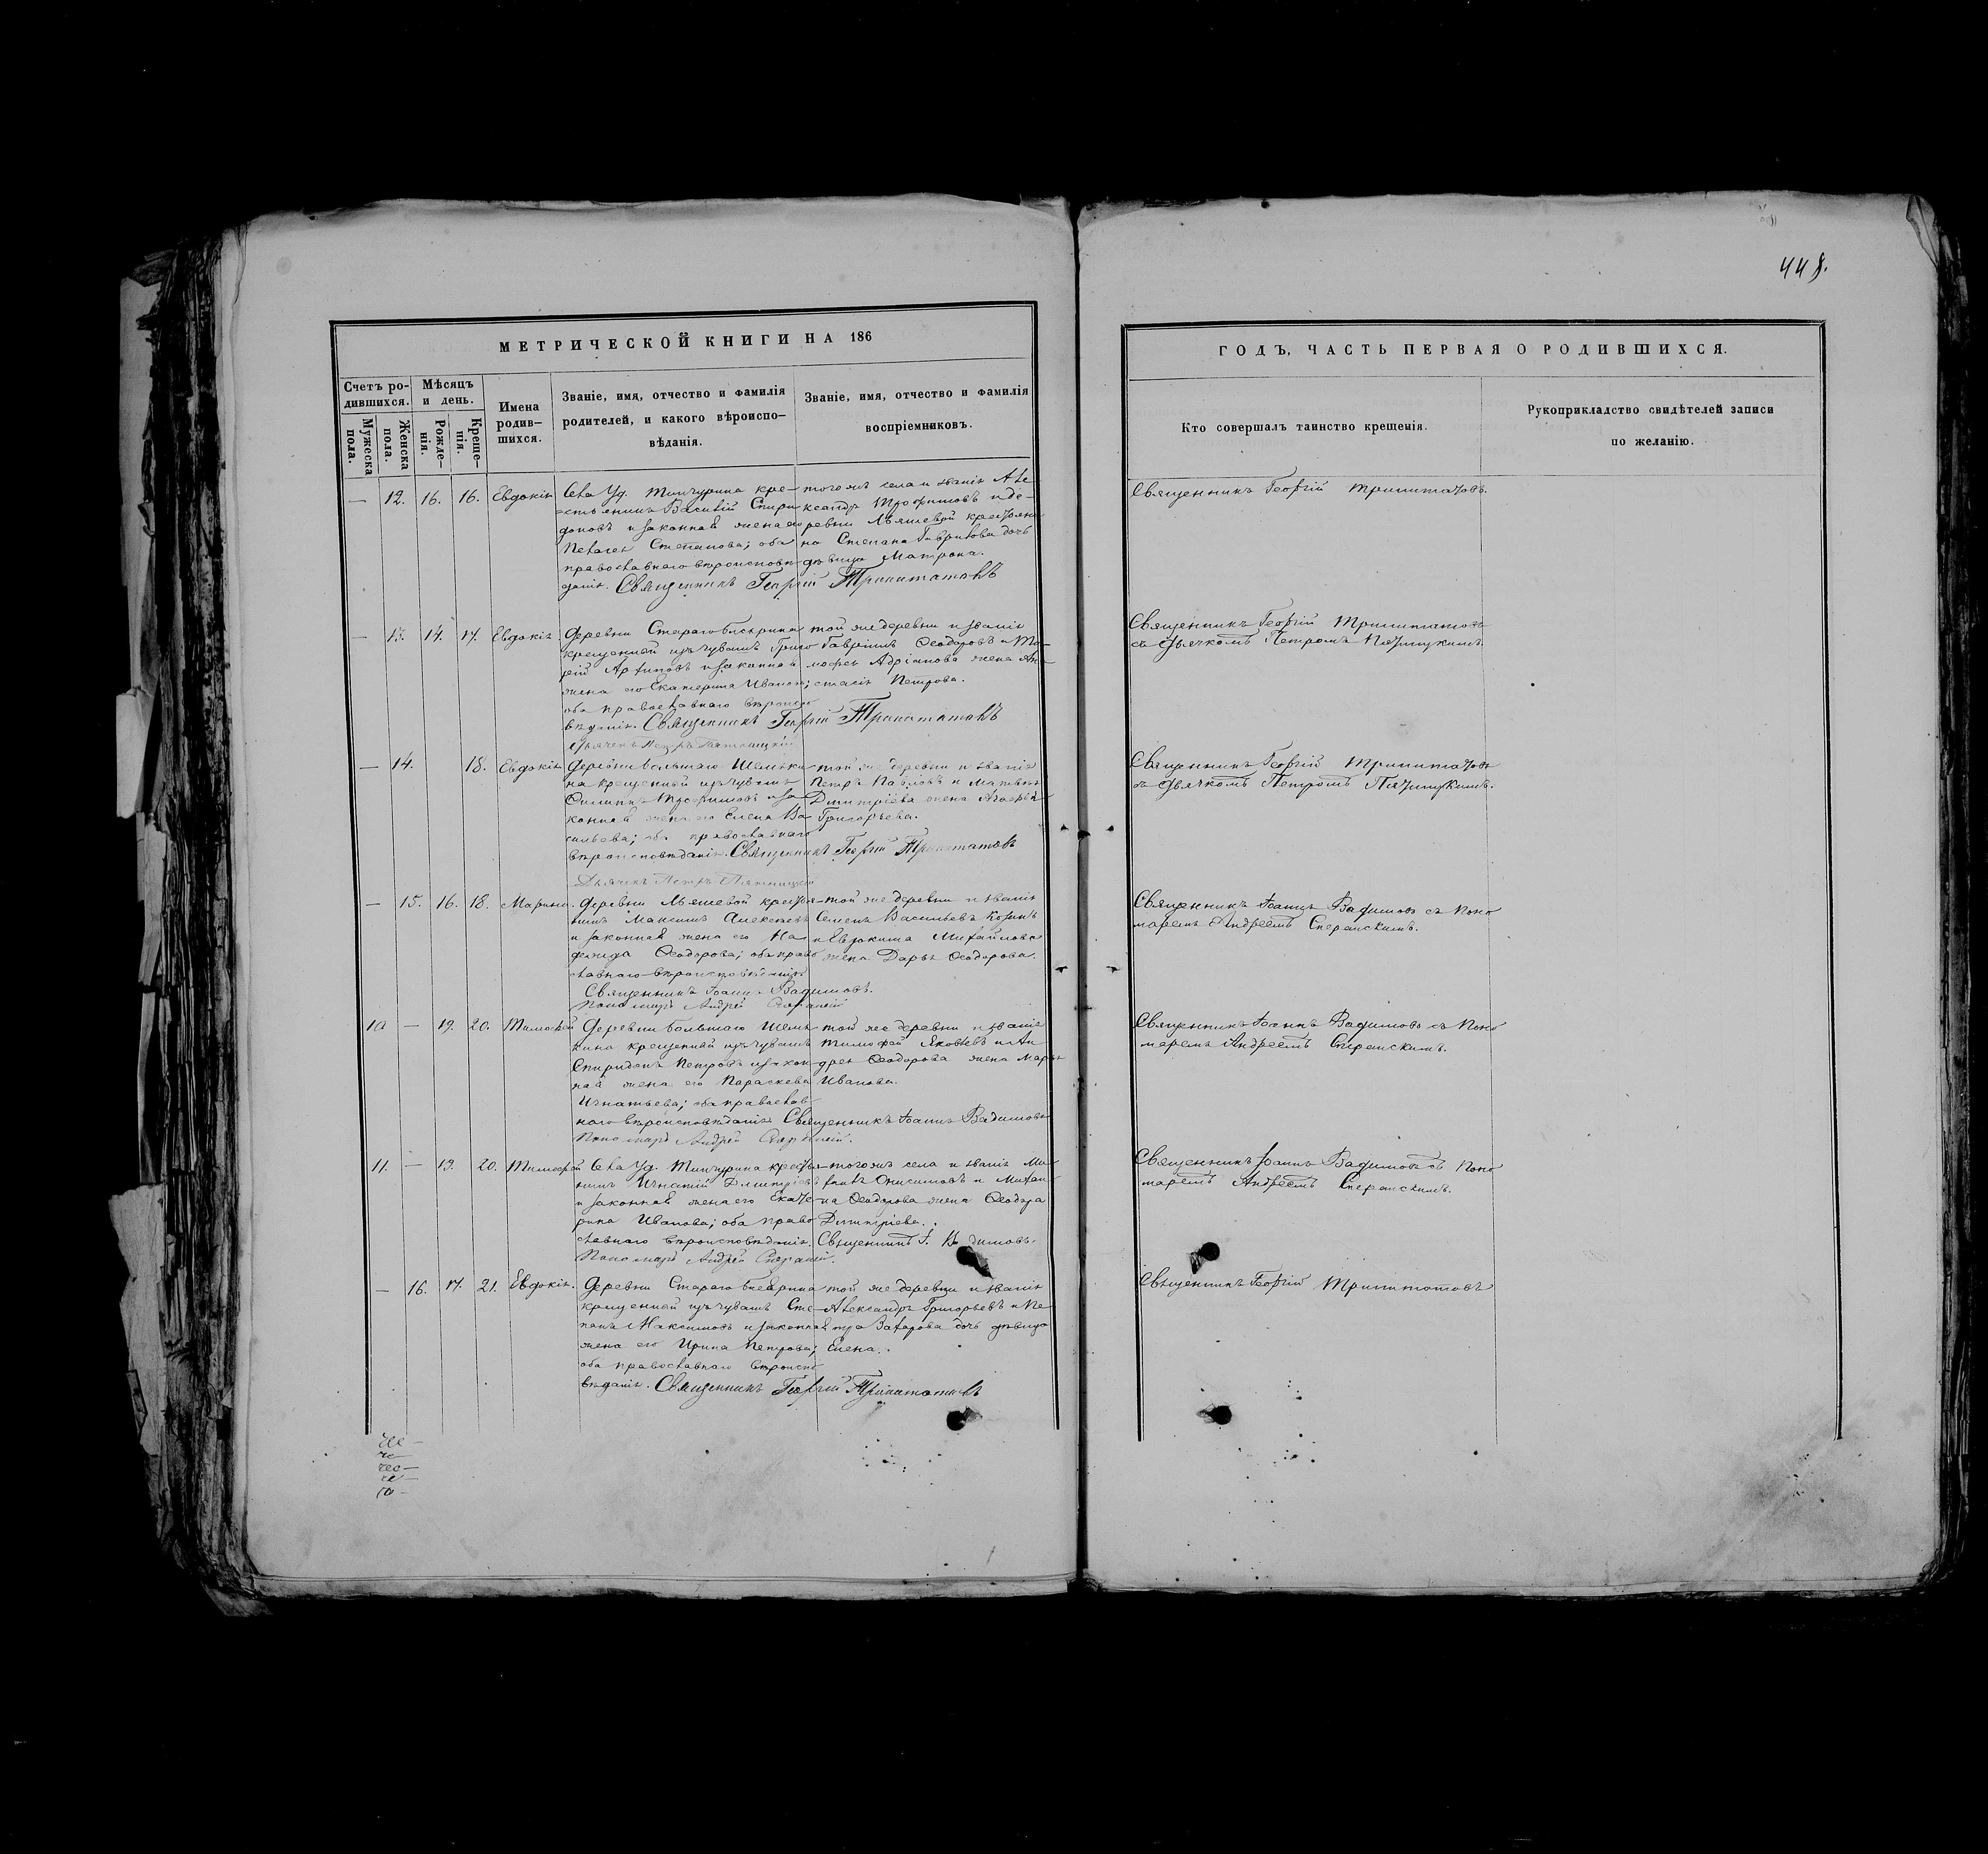 448.
МЕТРИЧЕСКОЙ КНИГИ НА 186
Счетъ ро-
дившихся.
Мужеска
пола.
Женска
пола.
Мѣсяцъ
и день.
Рожде-
нія.
Креще-
нія.
Имена
родив-
шихся.
Званіе, имя, отчество и фамилія
родителей, и какого вѣроиспо-
вѣданія.
Званіе, имя, отчество и фамилія
воспріемниковъ.
— 12. 16. 16. Евдокія
Села Уд. Тинчурина кре-
стьянинъ Василій Спири
доновъ и законная жена его
Пелагея Степанова; оба
православнаго вѣроисповѣ
данія. Священникъ Георгій Трипитатовъ
того жъ села и званія Але
ксандръ Трофимовъ и де-
ревни Льяшевой крестьяни
на Степана Гаврилова дочь
дѣвица Матрона.
— 13. 14. 17. Евдокія
Деревни Стараго
крещеный изъ чувашъ Григо
рій Архиповъ и законная
жена его Екатерина Иванова;
оба православнаго вѣроиспо
вѣданія. Священникъ Георгій Трипитатовъ
Дьячекъ Петръ Пятницкій
той же деревни и званія
Гавріилъ Ѳеодоровъ и Ти-
моѳея Адріанова жена Ана-
стасія Петрова.
— 14. 18. Евдокія
Деревни Большаго Шемяки
на крещеный изъ чувашъ
Филиппъ Трофимовъ и за
конная жена его Елена Ва
сильева; оба православнаго
вѣроисповѣданія. Священникъ Георгій Трипитатовъ
Дьячекъ Петръ Пятницкій
той же деревни и званія
Петръ Павловъ и Матвѣя
Димитріева жена
Григорьева.
— 15. 16. 18. Марина.
Деревни Льяшевой крестья-
нинъ Максимъ Алексѣевъ
и законная жена его На
дежда Ѳеодорова; оба право
славнаго вѣроисповѣданія
Священникъ Іоаннъ Вадимовъ.
Пономарь Андрей Сперанскій
той же деревни и званія
Семенъ Васильевъ Козинъ
и Евдокима Михайлова
жена Дарья Ѳеодорова.
10 — 19. 20. Тимоѳей
Деревни Большаго Шемя
кина крещеный изъ чувашъ
Спиридонъ Петровъ и закон
ная жена его Параскева
Игнатьева; оба православ
наго вѣроисповѣданія. Священникъ Іоаннъ Вадимовъ
Пономарь Андрей Сперанскій.
той же деревни и званія
Тимофей Яковлевъ и Ан
дрея Ѳеодорова жена Марья
Иванова.
11. — 19. 20. Тимоѳей
Села Уд. Тинчурина крестья-
нинъ Игнатій Димитріевъ
и законная жена его Екате-
рина Иванова; оба право
славнаго вѣроисповѣданія. Священникъ І. Вадимовъ.
Пономарь Андрей Сперанскій.
того жъ села и званія Ми
хаилъ Онисимовъ и Михаи
ла Ѳеодорова жена Ѳеодора
Димитріева.
— 16. 17. 21. Евдокія.
Деревни Стараго
крещеный изъ чувашъ Сте-
панъ Максимовъ и законная
жена его Ирина Петрова;
оба православнаго вѣроиспо
вѣданія. Священникъ Георгій Трипитатовъ
той же деревни и званія
Александръ Григорьевъ и Пе
тра Захарова дочь дѣвица
Елена.
ГОДЪ, ЧАСТЬ ПЕРВАЯ О РОДИВШИХСЯ.
Кто совершалъ таинство крещенія.
Рукоприкладство свидѣтелей записи
по желанію.
Священникъ Георгій Трипитатовъ.
Священникъ Георгій Трипитатовъ
съ дьячкомъ Петромъ Пятницкимъ.
Священникъ Георгій Трипитатовъ
съ дьячкомъ Петромъ Пятницкимъ.
Священникъ Іоаннъ Вадимовъ съ Поно
маремъ Андреемъ Сперанскимъ.
Священникъ Іоаннъ Вадимовъ съ Поно
маремъ Андреемъ Сперанскимъ.
Священникъ Іоаннъ Вадимовъ съ Поно
маремъ Андреемъ Сперанскимъ.
Священникъ Георгій Трипитатовъ